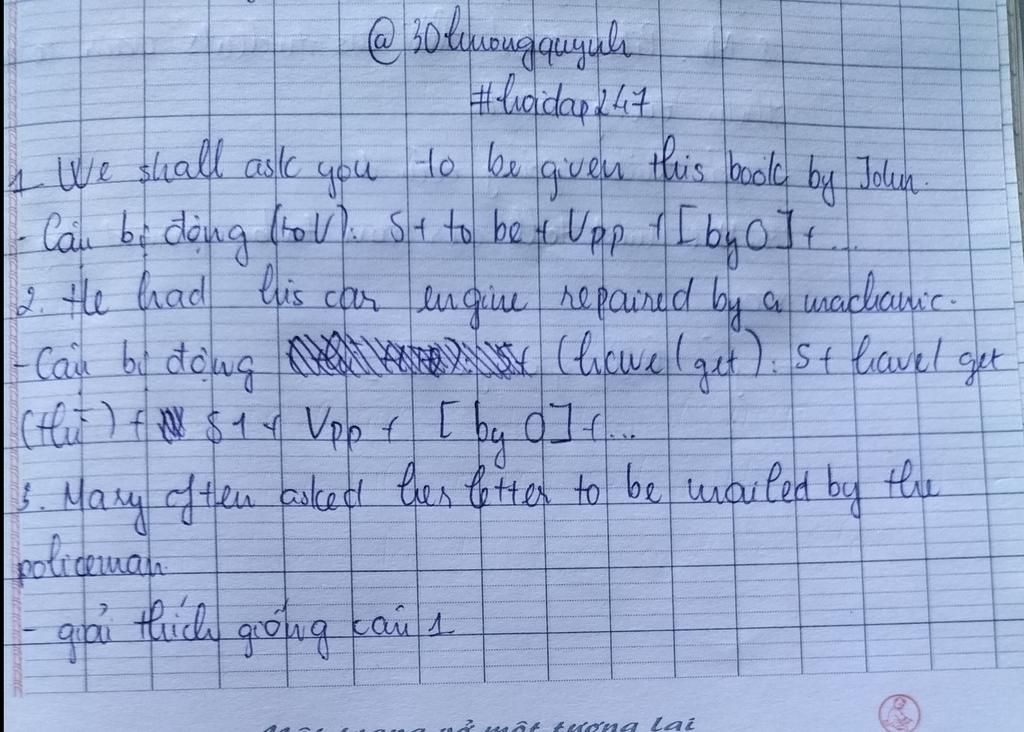 @ 30huongquynh
#hoidap247
1. We shall ask you to be given this book by John.
- Câu bị động (to V): S + to be + Vpp + [by O] + ...
2. He had his car engine repaired by a machanic.
- Câu bị động (have/get): S + have/get
(thì) + S1 + Vpp + [by O] + ...
3. Mary often asked her letter to be mailed by the
policeman.
- giải thích giống câu 1
một tương lai